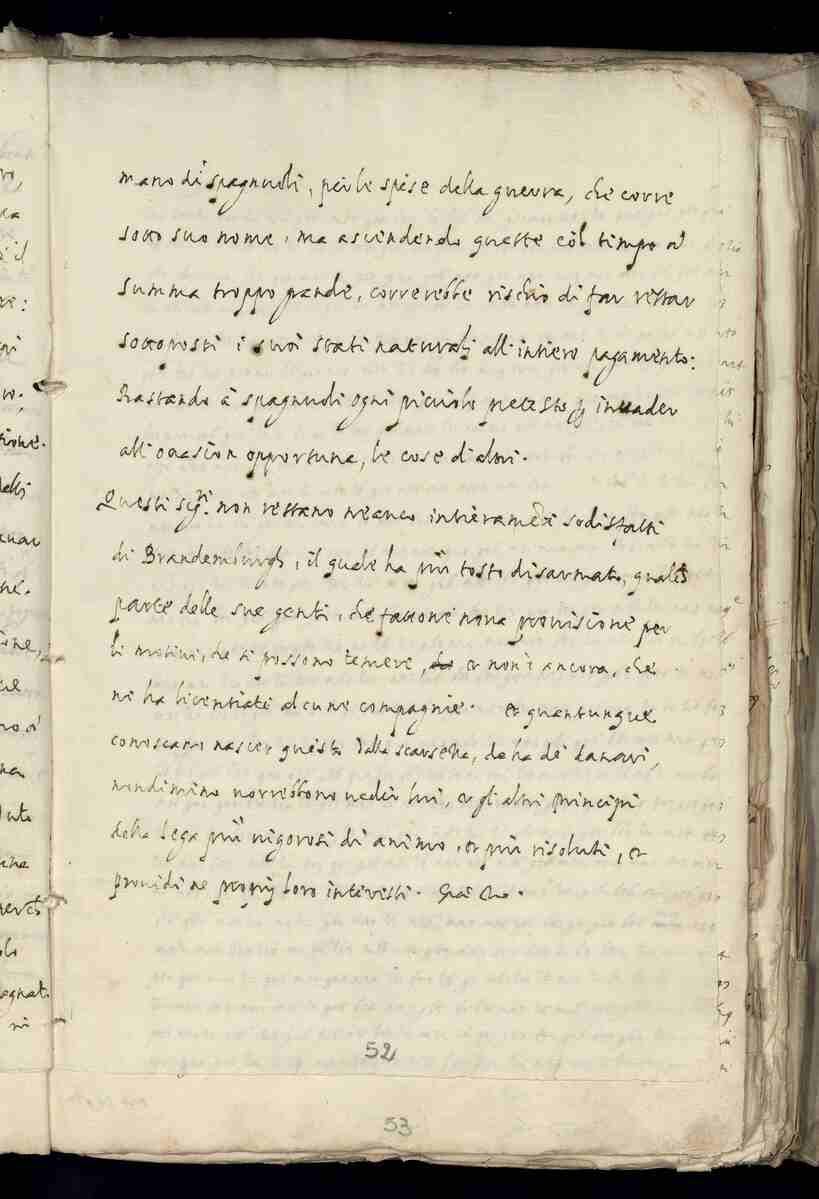 mano di spagnuoli, per le spese della guerra, che corre
sotto suo nome, ma ascendendo queste cõl tempo à
summa troppo grande, correrebbe rischio di far restar
sottoposti i suoi stati naturali all' intiero pagamento:
Bastando à spagnuoli ogni picciolo pretesto ꝑ inuader
all' occasion opportuna, le cose d' altri.
Questi sig.ri non restano neanco intieramẽte sodisfatti
di Brandemburgh, il quale ha più tosto disarmato, qualche
parte delle sue genti, che fattone noua prouisione per
li motiui, che si possono temere, et non è ancora, che
ne ha licentiate alcune compagnie. et quantunque
conoscano nascer questo dalla scarsezza, che ha de' danari,
nondimeno vorrebbono ueder lui, et gli altri Principi
della lega più uigorosi di animo, et più risoluti, et
prouidi ne proprij loro interessi.
52
53